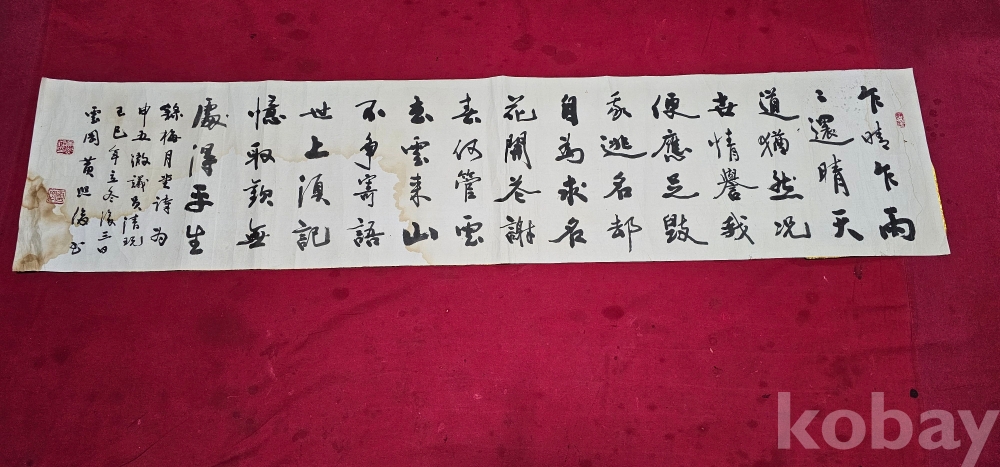 乍晴乍雨
〻還晴天
道猶然況
世情譽我
便應是毀
我逃名却
自為求名
花開花謝
春何管雲
去雲来山
不争寄語
世上須記
憶取歡無
處得平生
錄梅月堂詩為
申五澈議員清玩
己巳年立冬後三日
雲黃照書
kobay